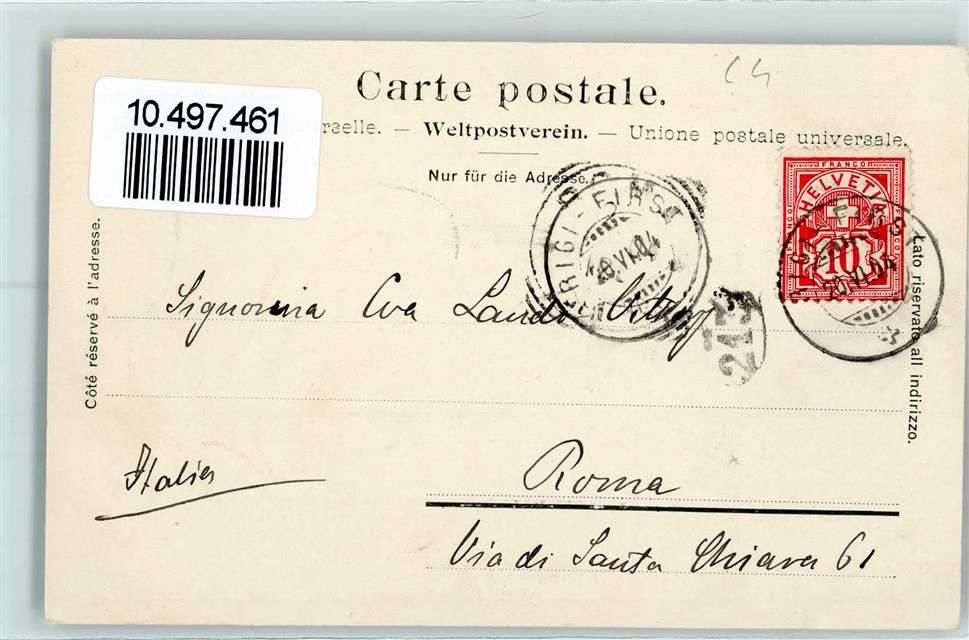 C4
Carte postale.
10.497.461
erselle. — Weltpostverein. — Unione postale universale.
Nur für die Adresse.
FRANCO
HELVETIA
10
RIGI-FIRST
20.VI.04
RIGI-FIRST
20.VI.04
Côté réservé à l'adresse.
Lato riservato all indirizzo.
Signorina Eva Landi
217
Italia
Roma
Via di Santa Chiara 61